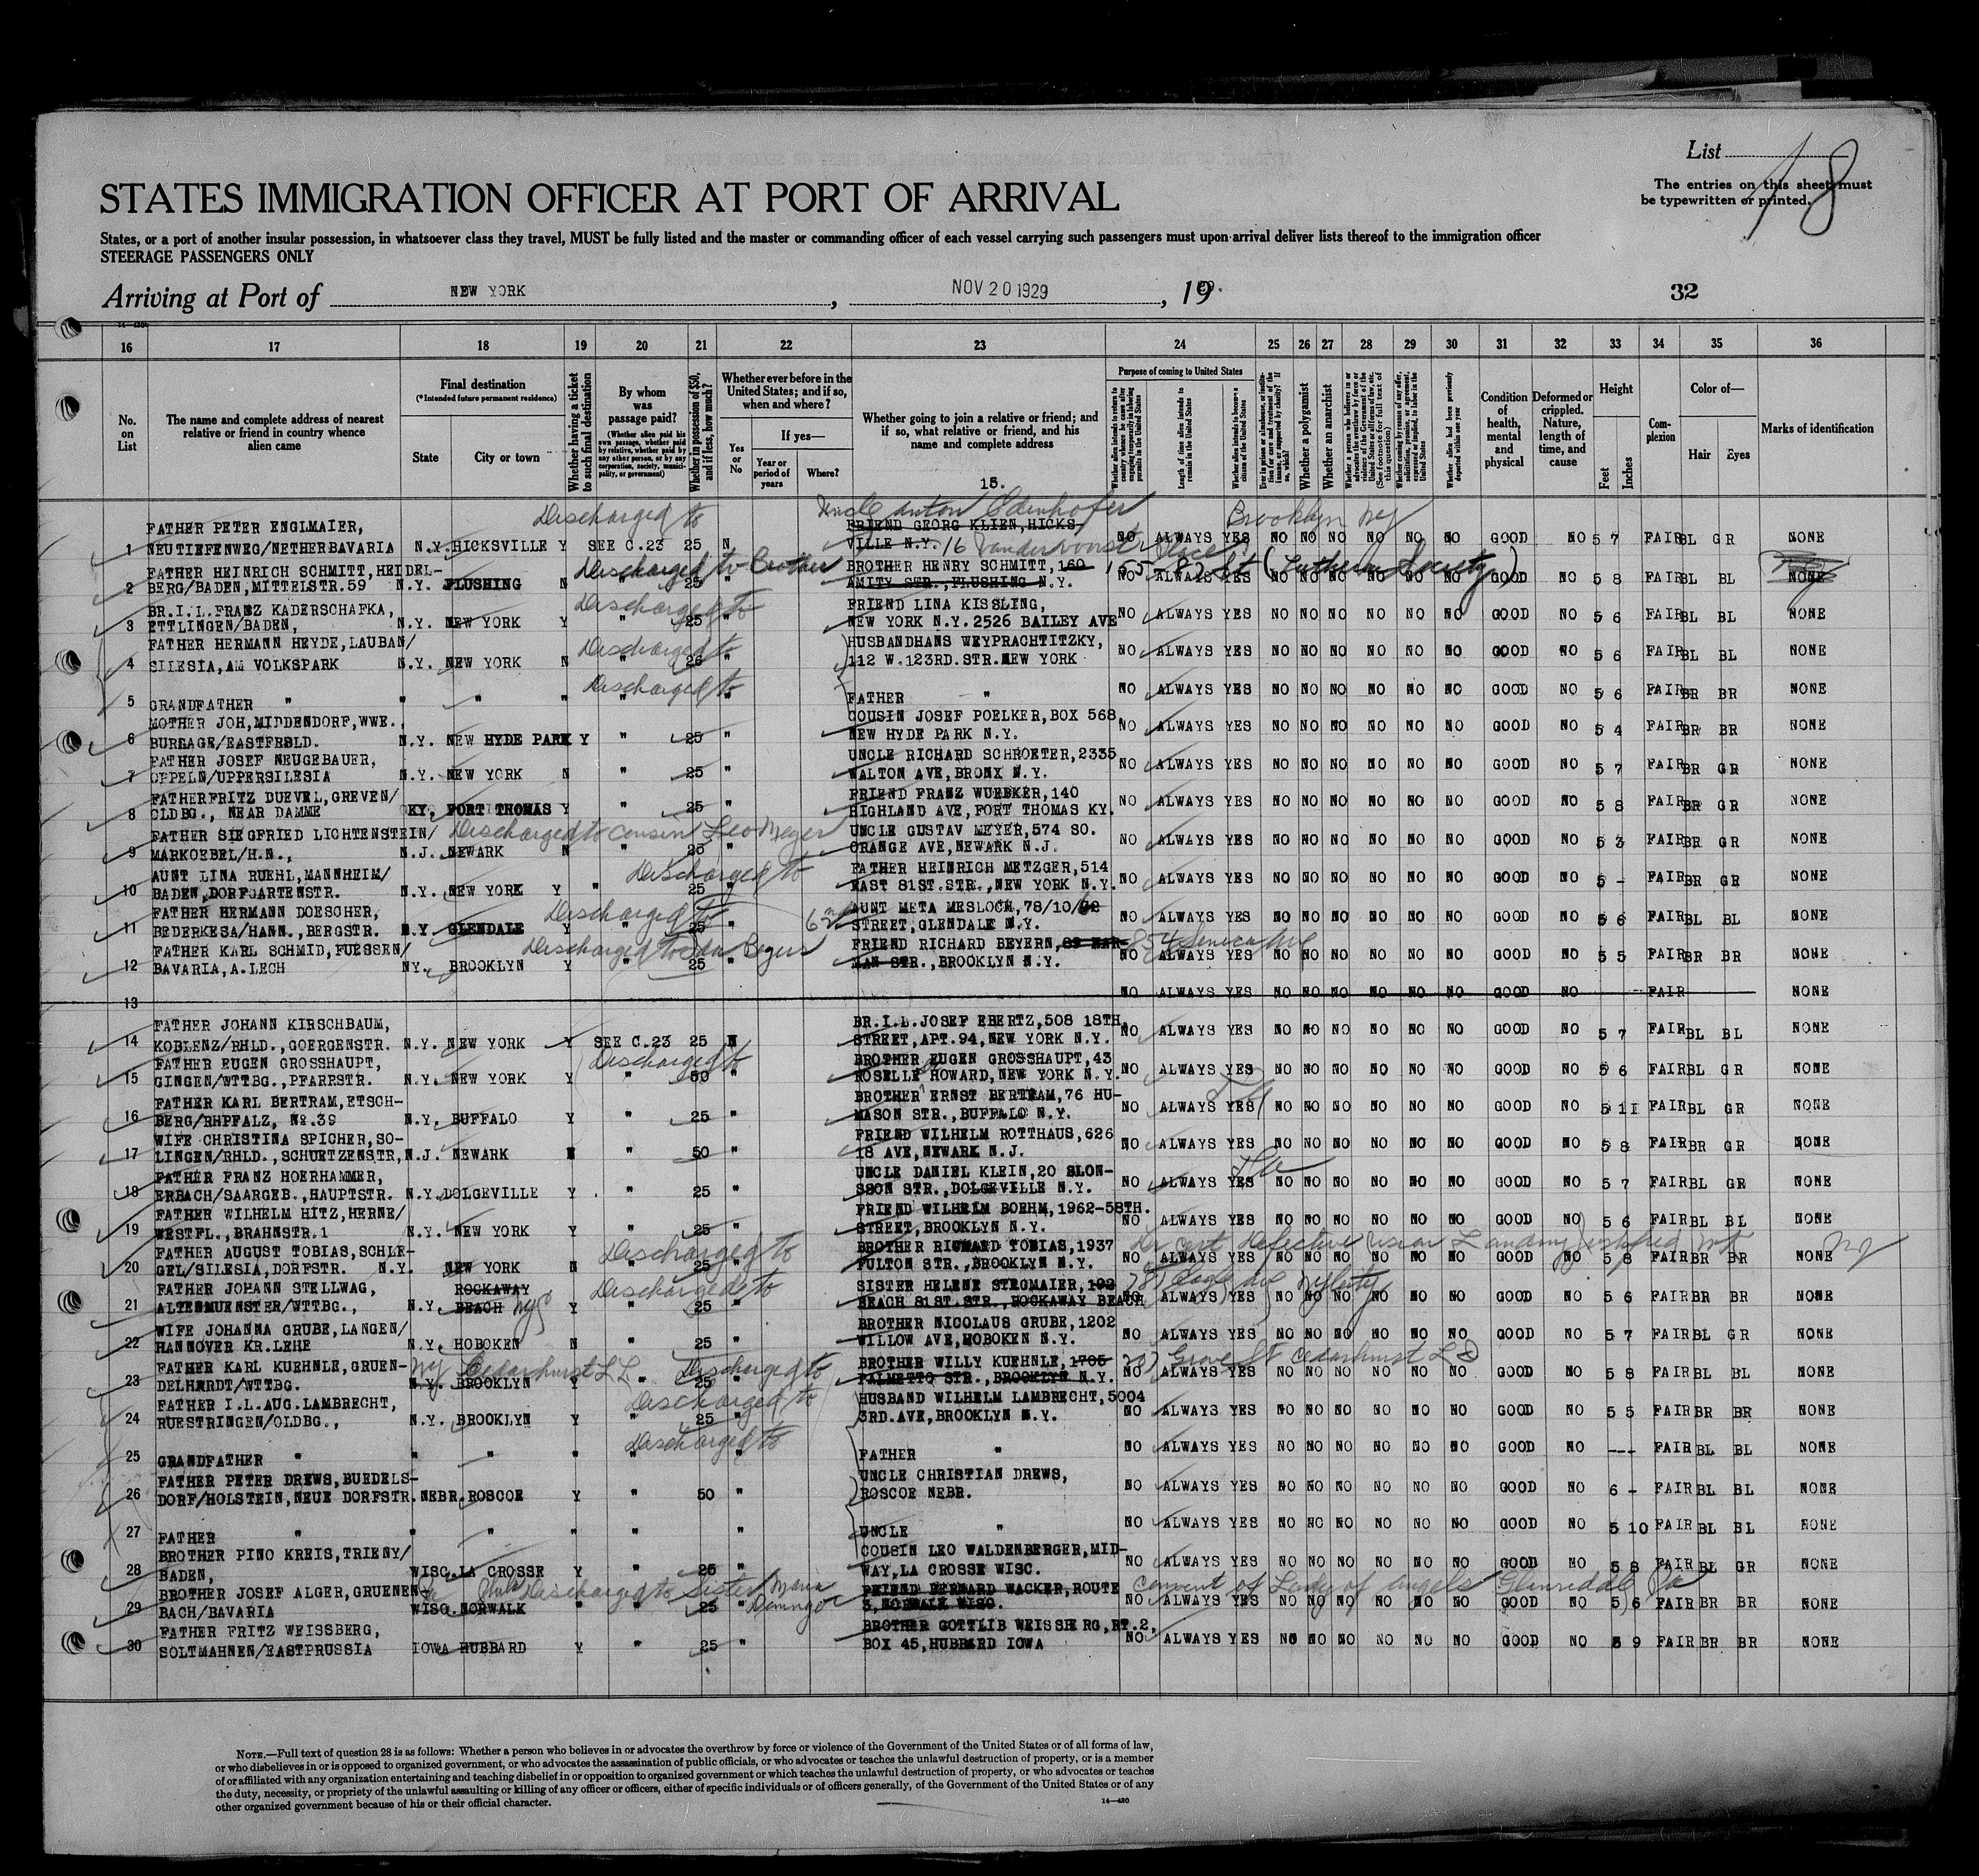 List 18
The entries on this sheet must
be typewritten or printed.
STATES IMMIGRATION OFFICER AT PORT OF ARRIVAL
States, or a port of another insular possession, in whatsoever class they travel, MUST be fully listed and the master or commanding officer of each vessel carrying such passengers must upon arrival deliver lists thereof to the immigration officer
STEERAGE PASSENGERS ONLY
Arriving at Port of NEW YORK, NOV 20 1929, 19
32
16 17 18 19 20 21 22 23 24 25 26 27 28 29 30 31 32 33 34 35 36
No. on List
The name and complete address of nearest relative or friend in country whence alien came
Final destination
(*Intended future permanent residence)
State
City or town
Whether having a ticket to such final destination
By whom was passage paid?
(Whether alien paid his own passage, whether paid by relative, whether paid by any other person, or by any corporation, society, municipality, or government)
Whether in possession of $50, and if less, how much?
Whether ever before in the United States; and if so, when and where?
Yes or No
If yes—
Year or period of years
Where?
Whether going to join a relative or friend; and if so, what relative or friend, and his name and complete address
15.
Purpose of coming to United States
Length of time alien intends to remain in the United States
Whether alien intends to become a citizen of the United States
Whether a polygamist
Whether an anarchist
(See footnote for full text of this question)
Whether alien had been previously deported within one year
Condition of health, mental and physical
Deformed or crippled. Nature, length of time, and cause
Height
Feet
Inches
Complexion
Color of—
Hair
Eyes
Marks of identification
Discharged to Uncle Anton Edenhofer Brooklyn NY
FATHER PETER ENGLMAIER, FRIEND GEORG KLIEN, HICKS-
1 NEUTIEFENWEG/NETHERBAVARIA N.Y. HICKSVILLE Y SEE C.23 25 N VILLE N.Y. 16 Place NO ALWAYS YES NO NO NO NO NO NO GOOD NO 5 7 FAIR BL GR NONE
FATHER HEINRICH SCHMITT, HEIDEL- Discharged to Brother BROTHER HENRY SCHMITT, 160 (Lutheran Society)
2 BERG/BADEN, MITTELSTR.59 N.Y. FLUSHING N " 25 " AMITY STR., FLUSHING N.Y. NO ALWAYS YES NO NO NO NO NO NO GOOD NO 5 8 FAIR BL BL NONE
BR.I.L. FRANZ KADERSCHAFKA, Discharged to FRIEND LINA KISSLING,
3 ETTLINGEN/BADEN, N.Y. NEW YORK Y " 25 " NEW YORK N.Y. 2526 BAILEY AVE NO ALWAYS YES NO NO NO NO NO NO GOOD NO 5 6 FAIR BL BL NONE
FATHER HERMANN HEYDE, LAUBAN/ Discharged to HUSBAND HANS WEYPRACHTITZKY,
4 SILESIA, AM VOLKSPARK N.Y. NEW YORK N " 26 " 112 W.123RD.STR. NEW YORK NO ALWAYS YES NO NO NO NO NO NO GOOD NO 5 6 FAIR BL BL NONE
Discharged to
5 GRANDFATHER " " " " " " FATHER " NO ALWAYS YES NO NO NO NO NO NO GOOD NO 5 6 FAIR BR BR NONE
MOTHER JOH, MIDDENDORF, WWE., COUSIN JOSEF POELKER, BOX 568,
6 BURLAGE/EASTFRSLD. N.Y. NEW HYDE PARK Y " 25 " NEW HYDE PARK N.Y. NO ALWAYS YES NO NO NO NO NO NO GOOD NO 5 4 FAIR BR BR NONE
FATHER JOSEF NEUGEBAUER, UNCLE RICHARD SCHROETER, 2335
7 OPPELN/UPPERSILESIA N.Y. NEW YORK N " 25 " WALTON AVE, BRONX N.Y. NO ALWAYS YES NO NO NO NO NO NO GOOD NO 5 7 FAIR BR GR NONE
FATHER FRITZ DUEVEL, GREVEN/ FRIEND FRANZ WUEBKER, 140
8 OLDBG., NEAR DAMME KY. FORT THOMAS Y " 25 " HIGHLAND AVE, FORT THOMAS KY. NO ALWAYS YES NO NO NO NO NO NO GOOD NO 5 8 FAIR BR GR NONE
FATHER SIEGFRIED LICHTENSTEIN/ Discharged to Cousin Leo Meyer UNCLE GUSTAV MEYER, 574 SO.
9 MARKOEBEL/H.N., N.J. NEWARK N " 25 " ORANGE AVE, NEWARK N.J. NO ALWAYS YES NO NO NO NO NO NO GOOD NO 5 3 FAIR BR GR NONE
AUNT LINA RUEHL, MANNHEIM/ Discharged to FATHER HEINRICH METZGER, 514
10 BADEN, DORFGARTENSTR. N.Y. NEW YORK Y " 25 " EAST 81ST.STR., NEW YORK N.Y. NO ALWAYS YES NO NO NO NO NO NO GOOD NO 5 - FAIR BR GR NONE
FATHER HERMANN DOESCHER, Discharged to AUNT META MESLOCH, 78/10/62
11 BEDERKESA/HANN., BERGSTR. N.Y. GLENDALE Y " 25 " STREET, GLENDALE N.Y. NO ALWAYS YES NO NO NO NO NO NO GOOD NO 5 6 FAIR BL BL NONE
FATHER KARL SCHMID, FUESSEN/ Discharged to FRIEND RICHARD BEYERN, 89 HAR- 854 Seneca Ave
12 BAVARIA, A.LECH NY. BROOKLYN Y " 25 " MAN STR., BROOKLYN N.Y. NO ALWAYS YES NO NO NO NO NO NO GOOD NO 5 5 FAIR BR BR NONE
13 NO ALWAYS YES NO NO NO NO NO NO GOOD NO FAIR NONE
FATHER JOHANN KIRSCHBAUM, BR.I.L. JOSEF EBERTZ, 508 18TH.
14 KOBLENZ/RHLD., GOERGENSTR. N.Y. NEW YORK Y SEE C.23 25 N STREET, APT.94, NEW YORK N.Y. NO ALWAYS YES NO NO NO NO NO NO GOOD NO 5 7 FAIR BL BL NONE
FATHER EUGEN GROSSHAUPT, Discharged to BROTHER EUGEN GROSSHAUPT, 43
15 GINGEN/WTTBG., PFARRSTR. N.Y. NEW YORK Y " 50 " ROSELLE HOWARD, NEW YORK N.Y. NO ALWAYS YES NO NO NO NO NO NO GOOD NO 5 6 FAIR BL GR NONE
FATHER KARL BERTRAM, ETSCH- BROTHER ERNST BERTRAM, 76 HU-
16 BERG/RHPFALZ, No.39 N.Y. BUFFALO Y " 25 " MASON STR., BUFFALO N.Y. NO ALWAYS YES NO NO NO NO NO NO GOOD NO 5 11 FAIR BL GR NONE
WIFE CHRISTINA SPICHER, SO- FRIEND WILHELM ROTTHAUS, 626
17 LINGEN/RHLD., SCHUETZENSTR, N.J. NEWARK N " 50 " 18 AVE, NEWARK N.J. NO ALWAYS YES NO NO NO NO NO NO GOOD NO 5 8 FAIR BR GR NONE
FATHER FRANZ HOERHAMMER, UNCLE DANIEL KLEIN, 20 SLON-
18 ERBACH/SAARGEB., HAUPTSTR. N.Y. DOLGEVILLE Y " 25 " SSON STR., DOLGEVILLE N.Y. NO ALWAYS YES NO NO NO NO NO NO GOOD NO 5 7 FAIR BL GR NONE
FATHER WILHELM HITZ, HERNE/ FRIEND WILHELM BOEHM, 1962-58TH.
19 WESTFL., BRAHNSTR.1 N.Y. NEW YORK Y " 25 " STREET, BROOKLYN N.Y. NO ALWAYS YES NO NO NO NO NO NO GOOD NO 5 6 FAIR BL BL NONE
FATHER AUGUST TOBIAS, SCHLE- Discharged to BROTHER RICHARD TOBIAS, 1937 Defective Vision Landing
20 GEL/SILESIA, DORFSTR. N.Y. NEW YORK N " 25 " FULTON STR., BROOKLYN N.Y. NO ALWAYS YES NO NO NO NO NO NO GOOD NO 5 8 FAIR BR BR NONE
FATHER JOHANN STELLWAG, ROCKAWAY Discharged to SISTER HELENE STEGMAIER, 192
21 ALTENMUENSTER/WTTBG., N.Y. BEACH Y " 25 " BEACH 81ST.STR., ROCKAWAY BEACH NO ALWAYS YES NO NO NO NO NO NO GOOD NO 5 6 FAIR BR BR NONE
WIFE JOHANNA GRUBE, LANGEN/ BROTHER NICOLAUS GRUBE, 1202
22 HANNOVER KR.LEHE N.Y. HOBOKEN N " 25 " WILLOW AVE, HOBOKEN N.Y. NO ALWAYS YES NO NO NO NO NO NO GOOD NO 5 7 FAIR BL GR NONE
FATHER KARL KUEHNLE, GRUEN- NY Cedarhurst L I Discharged to BROTHER WILLY KUEHNLE, 1705 Grove St Cedarhurst L I
23 DELHARDT/WTTBG. N.Y. BROOKLYN Y " 25 " PALMETTO STR., BROOKLYN N.Y. NO ALWAYS YES NO NO NO NO NO NO GOOD NO 5 8 FAIR BL BL NONE
FATHER I.L. AUG. LAMBRECHT, Discharged to HUSBAND WILHELM LAMBRECHT, 5004
24 RUESTRINGEN/OLDBG., N.Y. BROOKLYN Y " 25 " 3RD.AVE, BROOKLYN N.Y. NO ALWAYS YES NO NO NO NO NO NO GOOD NO 5 5 FAIR BR BR NONE
Discharged to
25 GRANDFATHER " " " " " " FATHER " NO ALWAYS YES NO NO NO NO NO NO GOOD NO --- FAIR BL BL NONE
FATHER PETER DREWS, BUEDELS- UNCLE CHRISTIAN DREWS,
26 DORF/HOLSTEIN, NEUE DORFSTR. NEBR. ROSCOE Y " 50 " ROSCOE NEBR. NO ALWAYS YES NO NO NO NO NO NO GOOD NO 6 - FAIR BL BL NONE
27 FATHER " " " " " " UNCLE " NO ALWAYS YES NO NO NO NO NO NO GOOD NO 5 10 FAIR BL BL NONE
BROTHER PINO KREIS, TRIENY/ COUSIN LEO WALDENBERGER, MID-
28 BADEN, WISC. LA CROSSE Y " 25 " WAY, LA CROSSE WISC. NO ALWAYS YES NO NO NO NO NO NO GOOD NO 5 8 FAIR BL GR NONE
BROTHER JOSEF ALGER, GRUENEN- Discharged to Sister Maria FRIEND BERNARD WACKER, ROUTE Convent of Lady of Angels Pa
29 BACH/BAVARIA WISC. NORWALK " " 25 " 3, NORWALK WISC. NO ALWAYS YES NO NO NO NO NO NO GOOD NO 5 6 FAIR BR BR NONE
FATHER FRITZ WEISSBERG, BROTHER GOTTLIB WEISSBERG, RT.2,
30 SOLTMAHNEN/EASTPRUSSIA IOWA HUBBARD Y " 25 " BOX 45, HUBBARD IOWA NO ALWAYS YES NO NO NO NO NO NO GOOD NO 5 9 FAIR BR BR NONE
NOTE.—Full text of question 28 is as follows: Whether a person who believes in or advocates the overthrow by force or violence of the Government of the United States or of all forms of law,
or who disbelieves in or is opposed to organized government, or who advocates the assassination of public officials, or who advocates or teaches the unlawful destruction of property, or is a member
of or affiliated with any organization entertaining and teaching disbelief in or opposition to organized government or which teaches the unlawful destruction of property, or who advocates or teaches
the duty, necessity, or propriety of the unlawful assaulting or killing of any officer or officers, either of specific individuals or of officers generally, of the Government of the United States or of any
other organized government because of his or their official character.
14—430